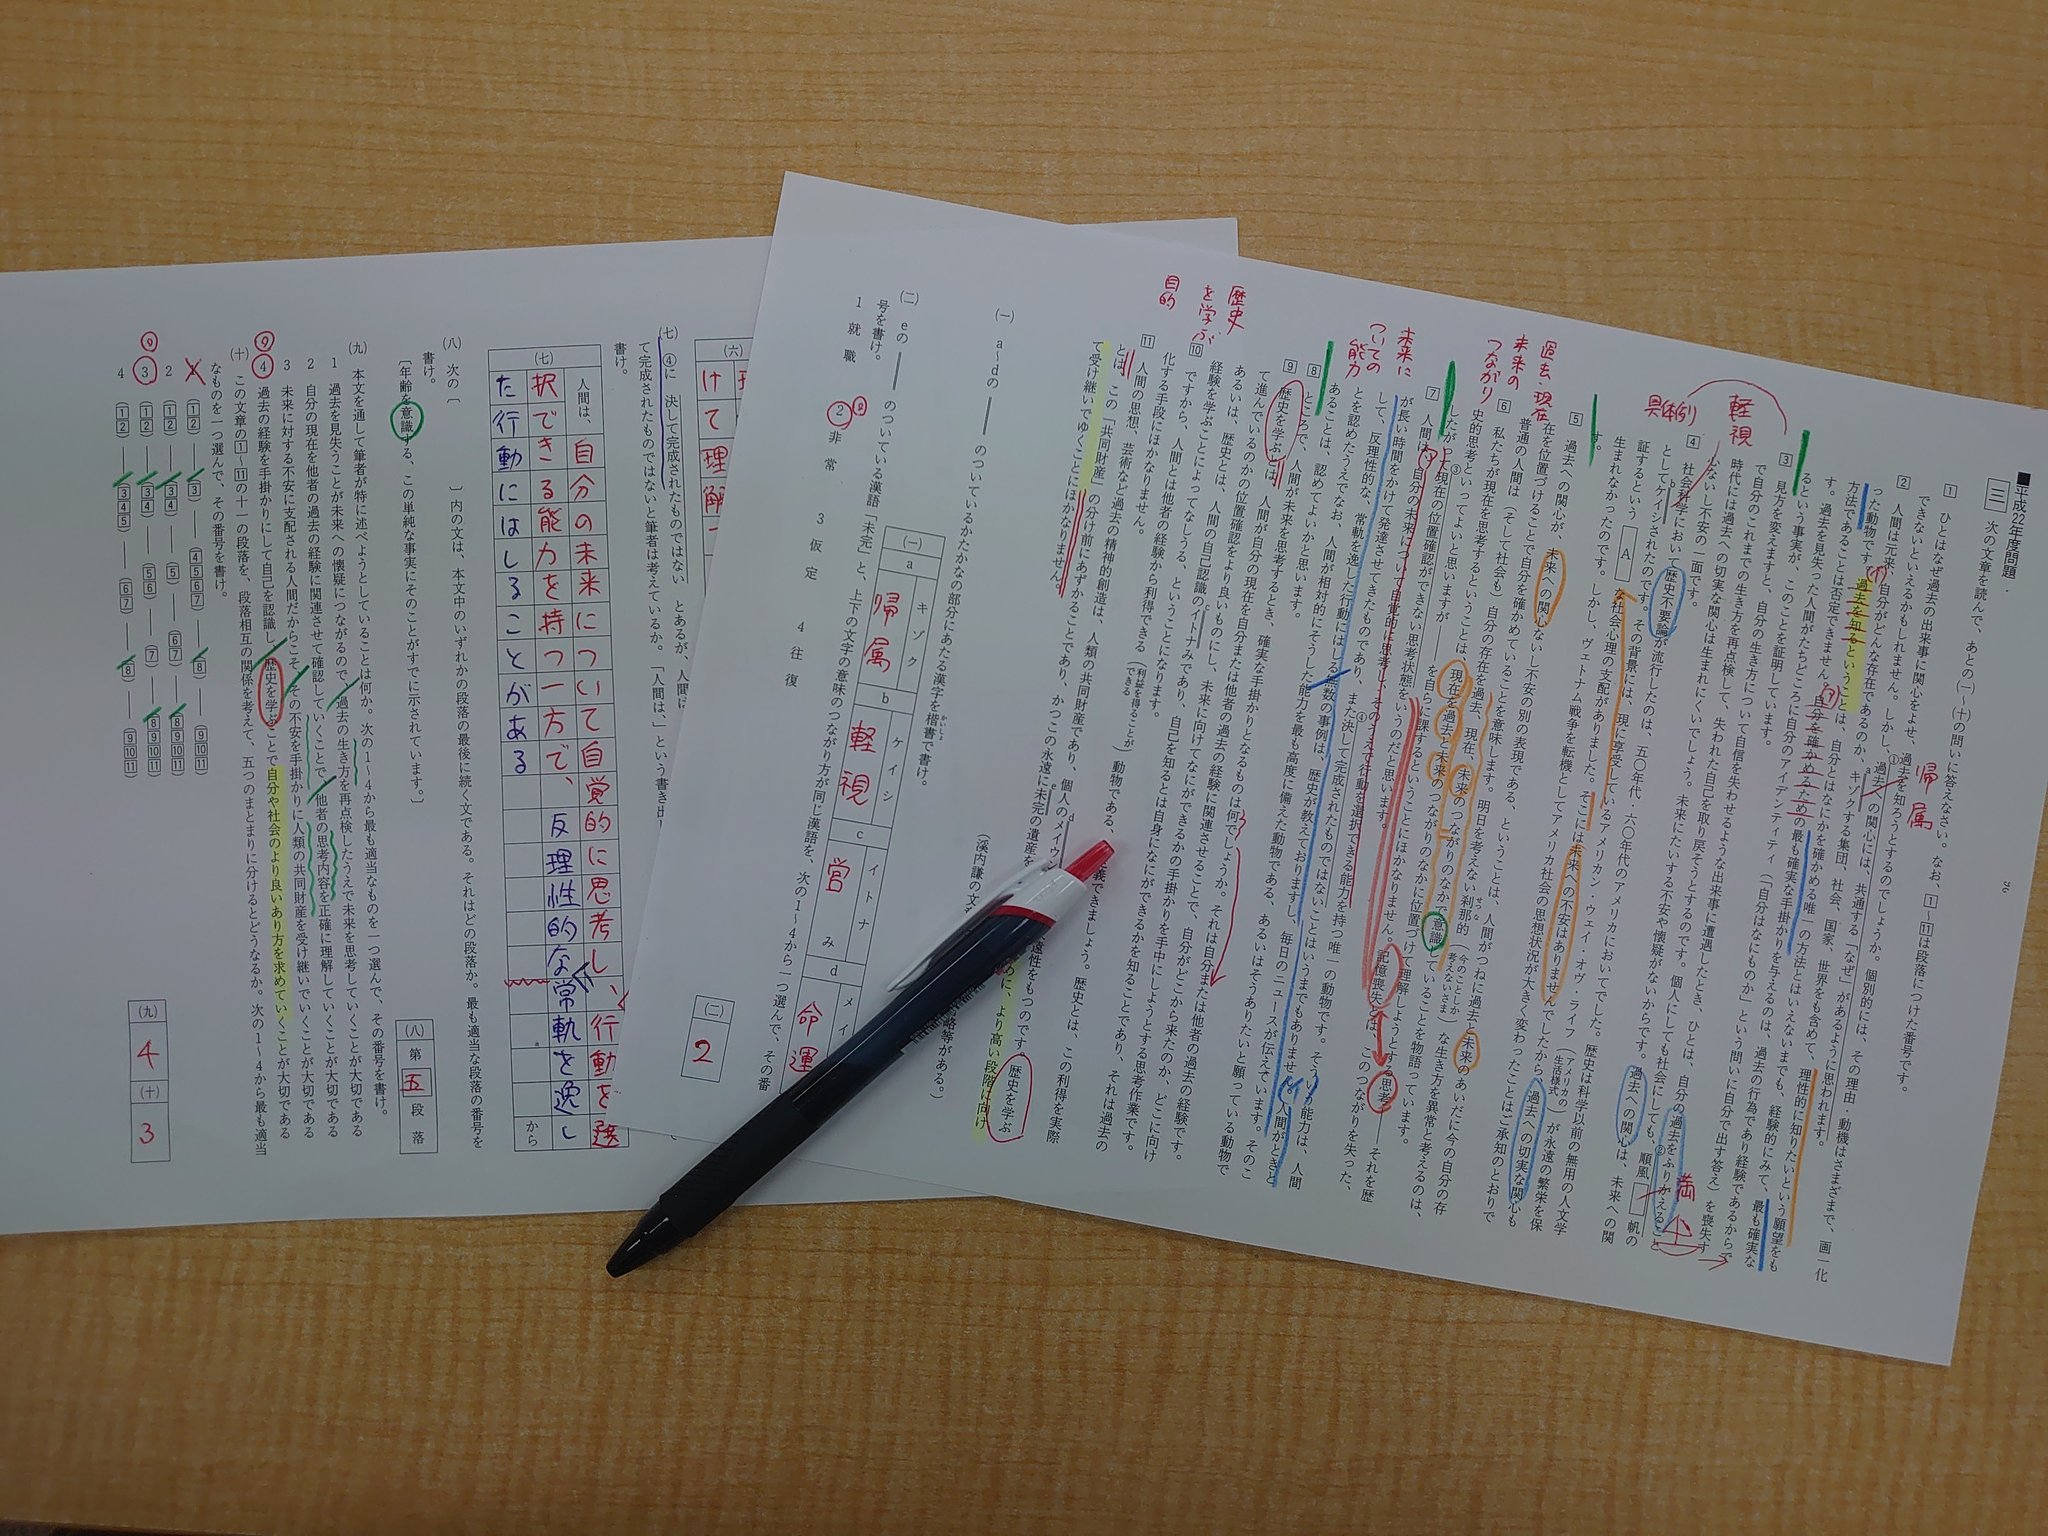 ■平成22年度問題・
三 次の文章を読んで、あとの(一)~(十)の問いに答えなさい。なお、1~11は段落につけた番号です。
1 ひとはなぜ過去の出来事に関心をよせ、過去を知ろうとするのでしょうか。個別的には、その理由・動機はさまざまで、画一化
できないといえるかもしれません。しかし、過去への関心には、共通する「なぜ」があるように思われます。
帰属
2 人間は元来、自分がどんな存在であるのか、キゾクする集団、社会、国家、世界をも含めて、理性的に知りたいという願望をも
った動物です。過去を知るということは、自分とはなにかを確かめる唯一の方法とはいえないまでも、経験的にみて、最も確実な
方法であることは否定できません。自分を確かめるための最も確実な手掛かりを与えるのは、過去の行為であり経験であるからで
す。過去を見失った人間がたちどころに自分のアイデンティティ(「自分はなにものか」という問いに自分で出す答え)を喪失す
るという事実が、このことを証明しています。
3 見方を変えますと、自分の生き方について自信を失わせるような出来事に遭遇したとき、ひとは、自分の過去をふりかえること
で自分のこれまでの生き方を再点検して、失われた自己を取り戻そうとするのです。個人にしても社会にしても、順風
帆の
満
時代には過去への切実な関心は生まれにくいでしょう。未来にたいする不安や懐疑がないからです。過去への関心は、未来への関
心ないし不安の一面です。
軽視
4 社会科学において歴史不要論が流行したのは、五〇年代・六〇年代のアメリカにおいてでした。歴史は科学以前の無用の人文学
としてケイシされたのです。その背景には、現に享受しているアメリカン・ウェイ・オヴ・ライフ(アメリカの生活様式)が永遠の繁栄を保
証するという
A
な社会心理の支配がありました。そこには未来への不安はありませんでしたから、過去への切実な関心も
生まれなかったのです。しかし、ヴェトナム戦争を転機としてアメリカ社会の思想状況が大きく変わったことはご承知のとおりで
す。
具体例
5 過去への関心が、未来への関心ないし不安の別の表現である、ということは、人間がつねに過去と未来のあいだに今の自分の存
在を位置づけることで自分を確かめていることを意味します。明日を考えない刹那的(今のことしか考えないさま)な生き方を異常と考えるのは、
普通の人間は(そして社会も)自分の存在を過去、現在、未来のつながりのなかで意識していることを物語っています。
過去・現在
未来の
つながり
6 私たちが現在を思考するということは、現在を過去と未来のつながりのなかに位置づけて理解しようとする思考――それを歴
史的思考といってよいと思いますが――を自らに課するということにほかなりません。記憶喪失とは、このつながりを失った、
したがって現在の位置確認ができない思考状態をいうのだと思います。
7 人間は、自分の未来について自覚的に思考し、そのうえで行動を選択できる能力を持つ唯一の動物です。そういう能力は、人間
が長い時間をかけて発達させてきたものであり、また決して完成されたものではないことはいうまでもありません。人間がときと
して、反理性的な、常軌を逸した行動にはしる無数の事例は、歴史が教えておりますし、毎日のニュースが伝えています。そのこ
とを認めたうえでなお、人間が相対的にそうした能力を最も高度に備えた動物である、あるいはそうありたいと願っている動物で
あることは、認めてよいかと思います。
未来に
ついての
能力
8 ところで、人間が未来を思考するとき、確実な手掛かりとなるものは何でしょうか。それは自分または他者の過去の経験です。
9 歴史を学ぶとは、人間が自分の現在を自分または他者の過去の経験に関連させることで、自分がどこから来たのか、どこに向け
て進んでいるのかの位置確認をより良いものにし、未来に向けてなにができるかの手掛かりを手中にしようとする思考作業です。
あるいは、歴史とは、人間の自己認識のイトナみであり、自己を知るとは自身になにができるかを知ることであり、それは過去の
経験を学ぶことによってなしうる、ということになります。
歴史
を学ぶ
目的
10 ですから、人間とは他者の経験から利得できる(利益を得ることができる)動物である、
義できましょう。歴史とは、この利得を実際
化する手段にほかなりません。
11 人間の思想、芸術など過去の精神的創造は、人類の共同財産であり、個人のメイウン
遠性をもつものです。歴史を学ぶ
とは、この「共同財産」の分け前にあずかることであり、かつこの永遠に未完の遺産を
めに、より高い段階に向け
て受け継いでゆくことにほかなりません。
(溪内謙の文
略等がある。)
(一) a~dの――のついているかたかなの部分にあたる漢字を楷書で書け。
(一)
a キゾク 帰属
b ケイシ 軽視
c イトナみ 営み
d メイ 命運
(二) eの――のついている漢語「未完」と、上下の文字の意味のつながり方が同じ漢語を、次の1~4から一つ選んで、その番
号を書け。
1 就職 2 非常 3 仮定 4 往復
(二) 2
(六)
けて理解
(七) ④に 決して完成されたものではない とあるが、人間に
て完成されたものではないと筆者は考えているか。「人間は、」という書き出
書け。
(七)
人間は、自分の未来について自覚的に思考し、行動を選
択できる能力を持つ一方で、反理性的な常軌を逸し
た行動にはしることがある
から
(八) 次の〔 〕内の文は、本文中のいずれかの段落の最後に続く文である。それはどの段落か。最も適当な段落の番号を
書け。
〔年齢を意識する、この単純な事実にそのことがすでに示されています。〕
(八) 第五段落
(九) 本文を通して筆者が特に述べようとしていることは何か。次の1~4から最も適当なものを一つ選んで、その番号を書け。
1 過去を見失うことが未来への懐疑につながるので、過去の生き方を再点検したうえで未来を思考していくことが大切である
2 自分の現在を他者の過去の経験に関連させて確認していくことで、他者の思考内容を正確に理解していくことが大切である
3 未来に対する不安に支配される人間だからこそ、その不安を手掛かりに人類の共同財産を受け継いでいくことが大切である
4 過去の経験を手掛かりにして自己を認識し、歴史を学ぶことで自分や社会のより良いあり方を求めていくことが大切である
(十) この文章の1~11の十一の段落を、段落相互の関係を考えて、五つのまとまりに分けるとどうなるか。次の1~4から最も適当
なものを一つ選んで、その番号を書け。
12――3――4567――8――91011
2 12――34――5――67――891011
3 12――34――56――7――891011
4 12――345――67――8――91011
(九) 4
(十) 3